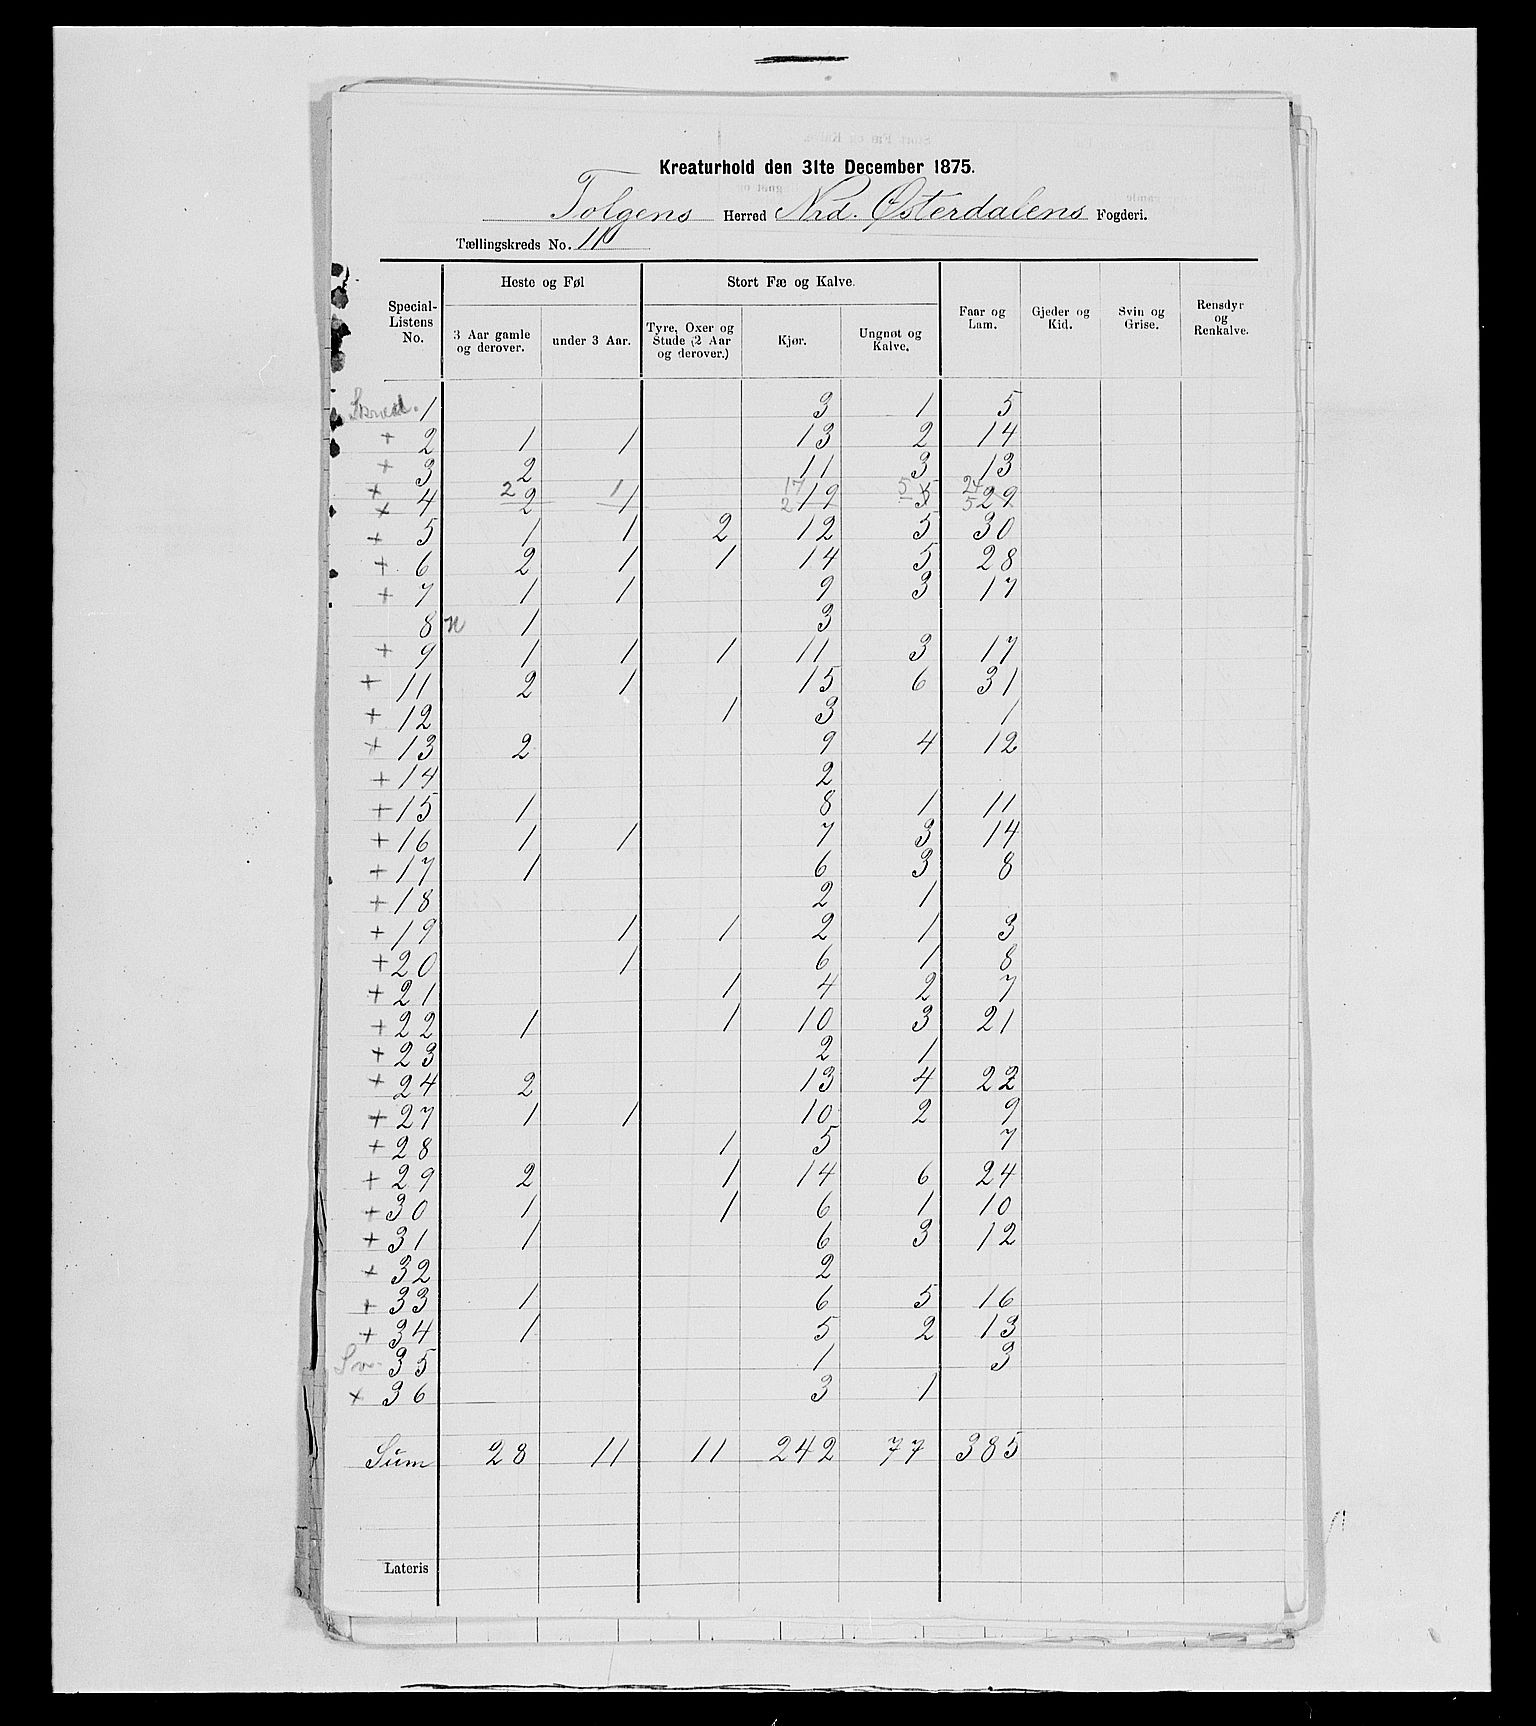 Kreaturhold den 31te December 1875.
Tolgens Herred Nrd. Østerdalens Fogderi.
Tællingskreds No. 11
Special-Listens No. | Heste og Føl | Stort Fæ og Kalve. | Faar og Lam. | Gjeder og Kid. | Svin og Grise. | Rensdyr og Renkalve.
3 Aar gamle og derover. | under 3 Aar. | Tyre, Oxer og Stude (2 Aar og derover.) | Kjør. | Ungnøt og Kalve.
1 | | | | 3 | 1 | 5
+ 2 | 1 | 1 | | 13 | 2 | 14
+ 3 | 2 | | | 11 | 3 | 13
+ + 4 | 2 2 | 1 1 | | 17 2 19 | 5 5 | 24 5 29
+ 5 | 1 | 1 | 2 | 12 | 5 | 30
+ 6 | 2 | 1 | 1 | 14 | 5 | 28
+ 7 | 1 | 1 | | 9 | 3 | 17
8 | n 1 | | | 3 | |
+ 9 | 1 | 1 | 1 | 11 | 3 | 17
+ 11 | 2 | 1 | | 15 | 6 | 31
+ 12 | | | 1 | 3 | | 1
+ 13 | 2 | | | 9 | 4 | 12
+ 14 | | | | 2 | |
+ 15 | 1 | | | 8 | 1 | 11
+ 16 | 1 | 1 | | 7 | 3 | 14
+ 17 | 1 | | | 6 | 3 | 8
+ 18 | | | | 2 | 1 |
+ 19 | | 1 | 1 | 2 | 1 | 3
+ 20 | | 1 | | 6 | 1 | 8
+ 21 | | | 1 | 4 | 2 | 7
+ 22 | 1 | | 1 | 10 | 3 | 21
+ 23 | | | | 2 | 1 |
+ 24 | 2 | | | 13 | 4 | 22
+ 27 | 1 | 1 | | 10 | 2 | 9
+ 28 | | | 1 | 5 | | 7
+ 29 | 2 | | 1 | 14 | 6 | 24
+ 30 | 1 | | 1 | 6 | 1 | 10
+ 31 | 1 | | | 6 | 3 | 12
+ 32 | | | | 2 | |
+ 33 | 1 | | | 6 | 5 | 16
+ 34 | 1 | | | 5 | 2 | 13
35 | | | | 1 | | 3
+ 36 | | | | 3 | 1 |
Sum | 28 | 11 | 11 | 242 | 77 | 385
Lateris